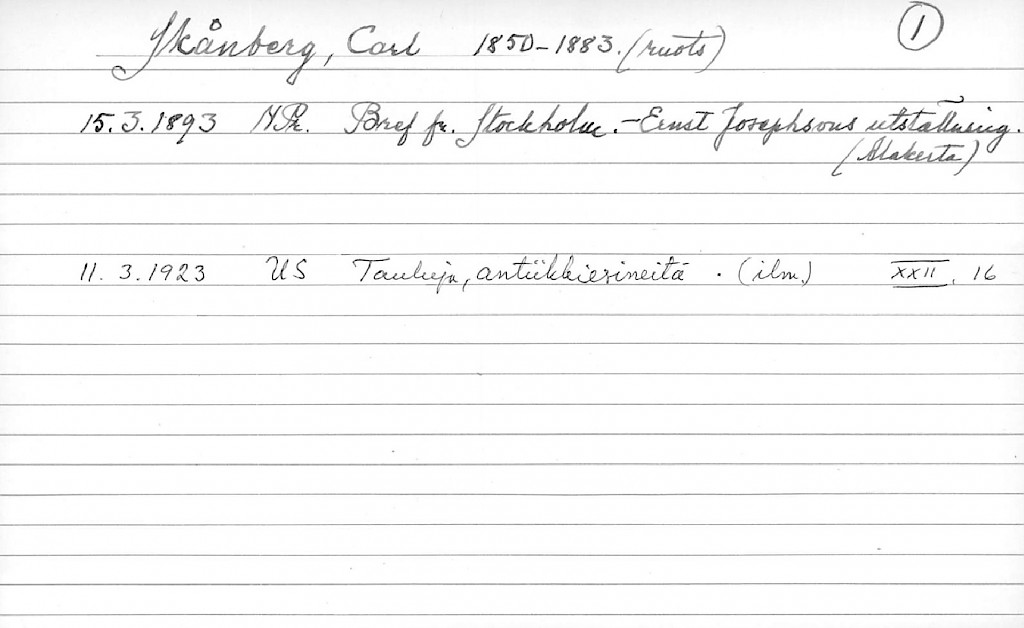 Skånberg, Carl 1850-1883. (ruots) 1
15.3.1893 N.Pr. Bref fr. Stockholm. - Ernst Josephsons utställning.
(Alakerta)
11.3.1923 US Tauluja, antiikkiesineitä. (ilm.) XXII, 16